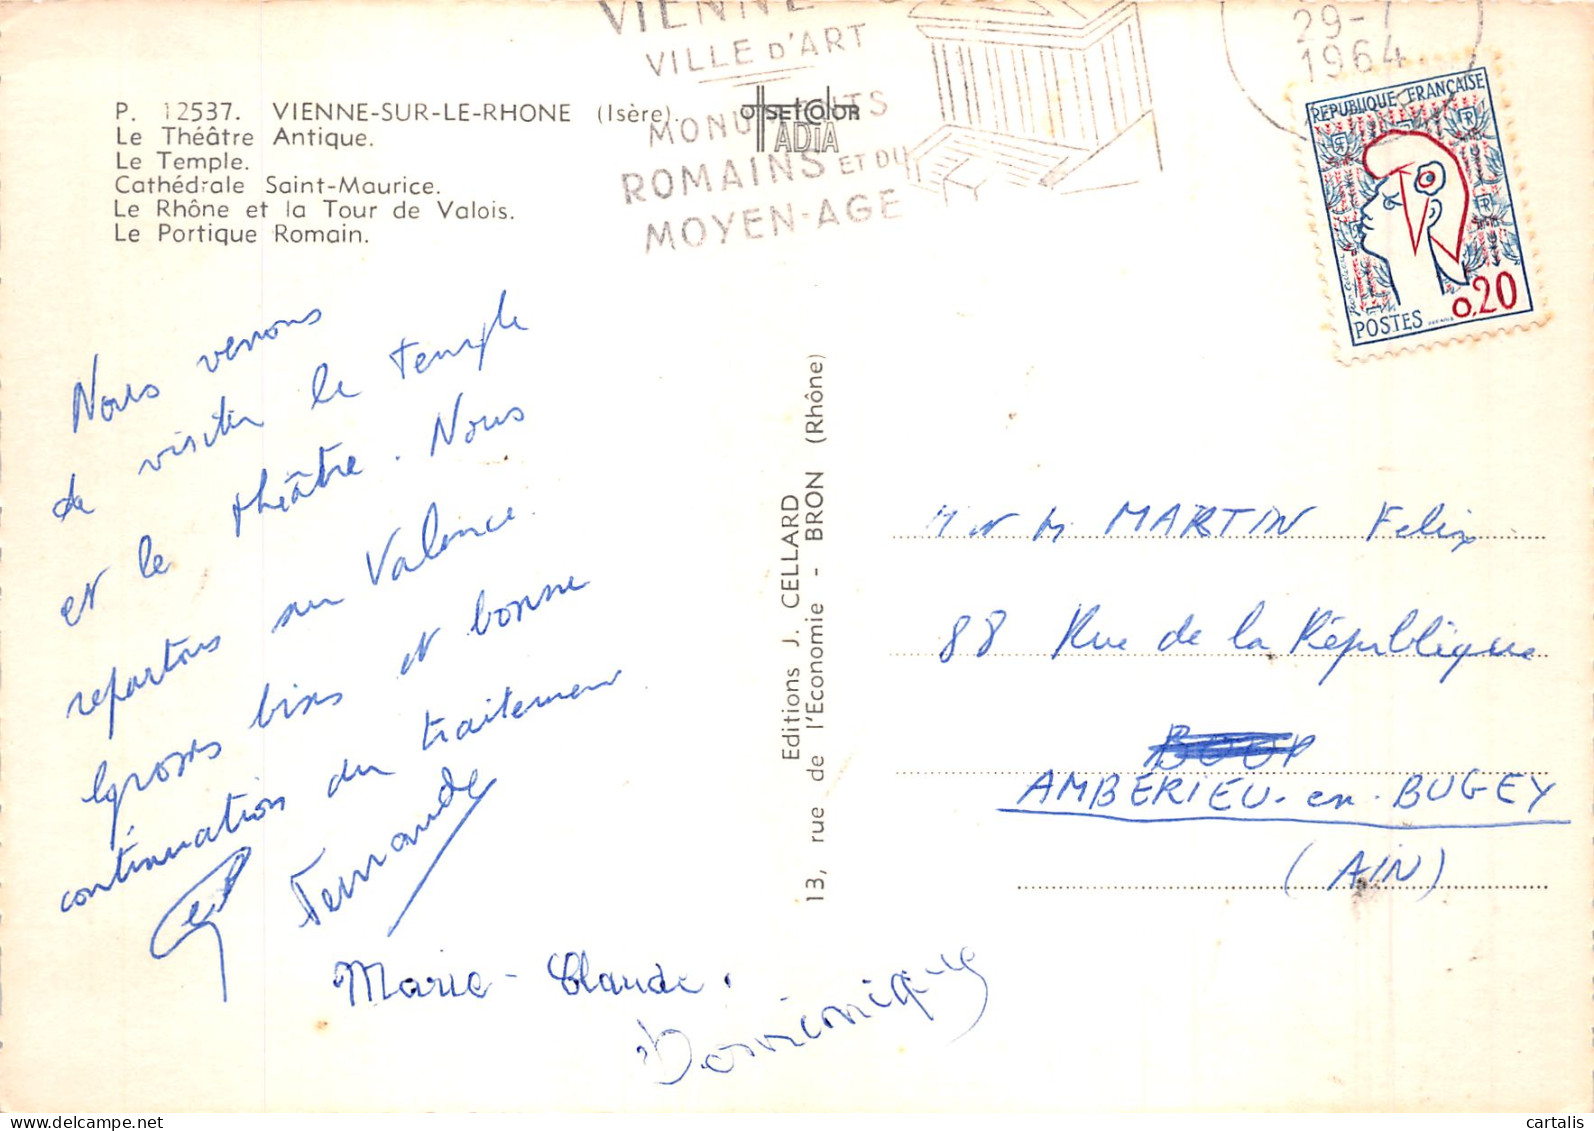 VIENNE
VILLE D'ART
MONUMENTS
ROMAINS ET DU
MOYEN-AGE
29-7
1964
REPUBLIQUE FRANÇAISE
0,20
POSTES
P. 12537. VIENNE-SUR-LE-RHONE (Isère).
Le Théâtre Antique.
Le Temple.
Cathédrale Saint-Maurice.
Le Rhône et la Tour de Valois.
Le Portique Romain.
OFFSET COLOR
IADIA
Nous venons
de visiter le temple
et le théâtre. Nous
repartons sur Valence.
Grosses bises et bonne
continuation du traitement
Fernande
Marie-Claude.
Dominique
Editions J. CELLARD
13, rue de l'Economie - BRON (Rhône)
M et M MARTIN Felix
88 Rue de la République
AMBÉRIEU-en-BUGEY
(AIN)
cartalis
delcampe.net